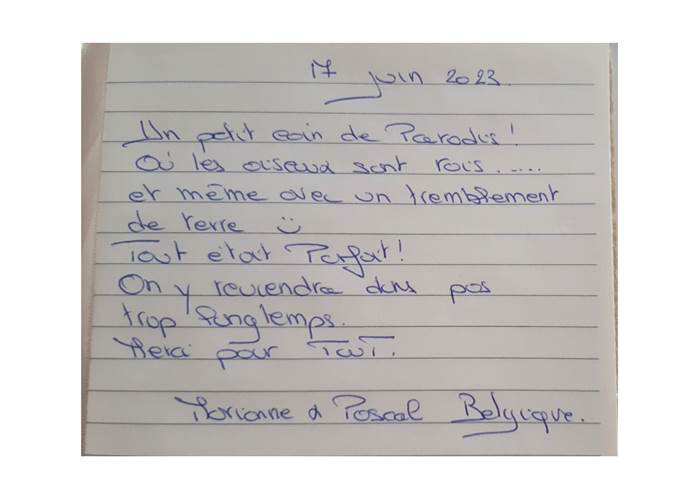 17 juin 2023.
Un petit coin de Paradis!
Où les oiseaux sont rois.....
et même avec un tremblement
de terre ☺
Tout était Parfait!
On y reviendra dans pas
trop longtemps.
Merci pour TouT.
Marianne & Pascal Belgique.